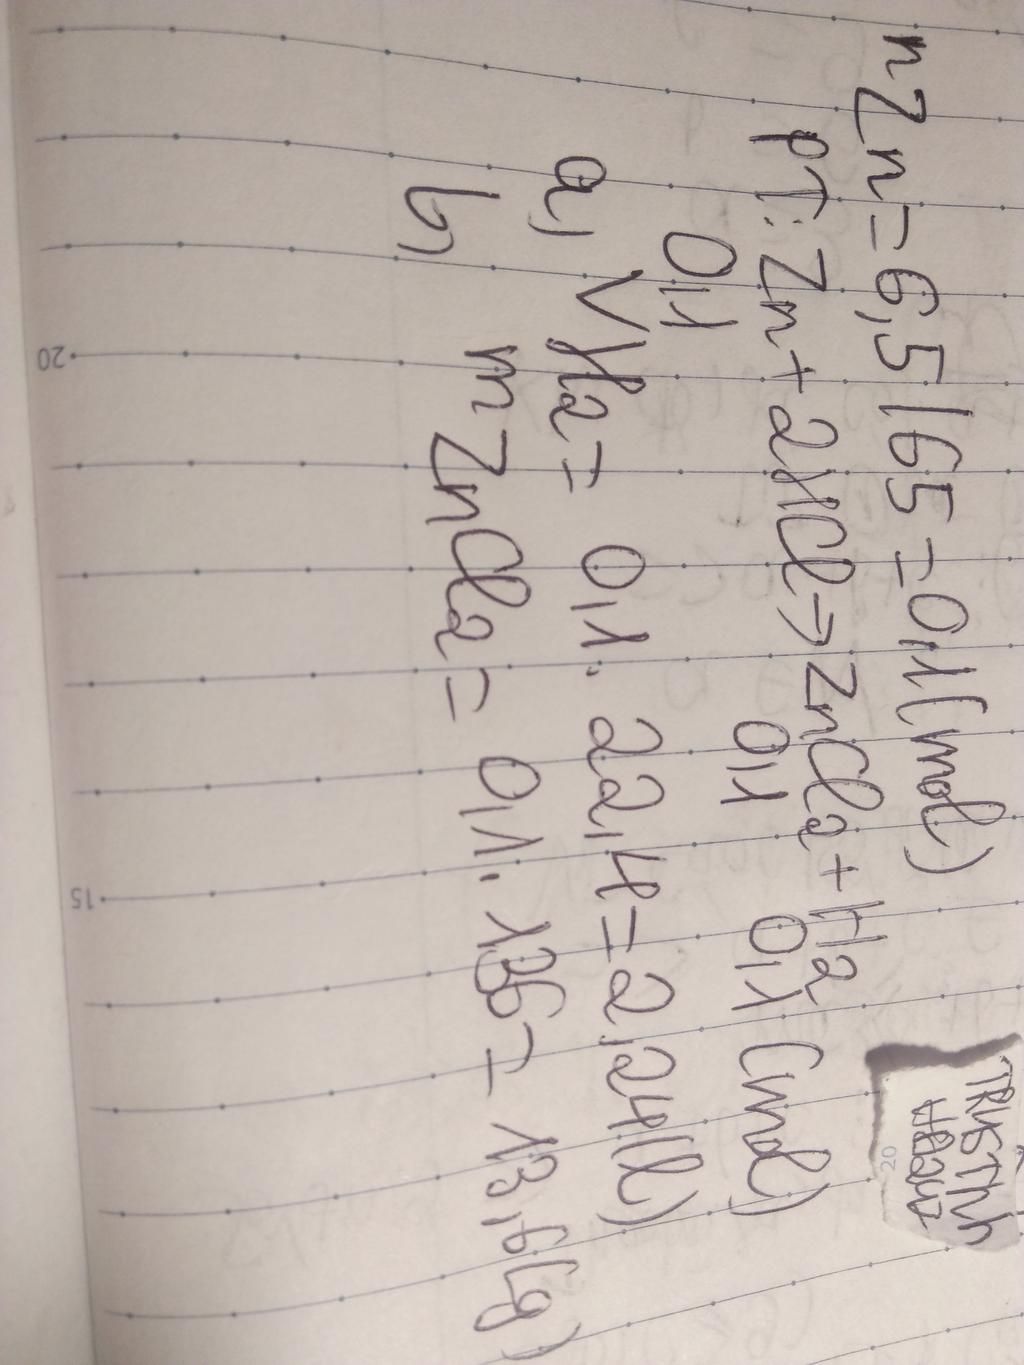 nZn = 6,5/65 = 0,1 (mol)
PT: Zn + 2HCl → ZnCl2 + H2
0,1 0,1 0,1 (mol)
a, VH2 = 0,1 . 22,4 = 2,24 (l)
b, mZnCl2 = 0,1 . 136 = 13,6 (g)
20
15
20